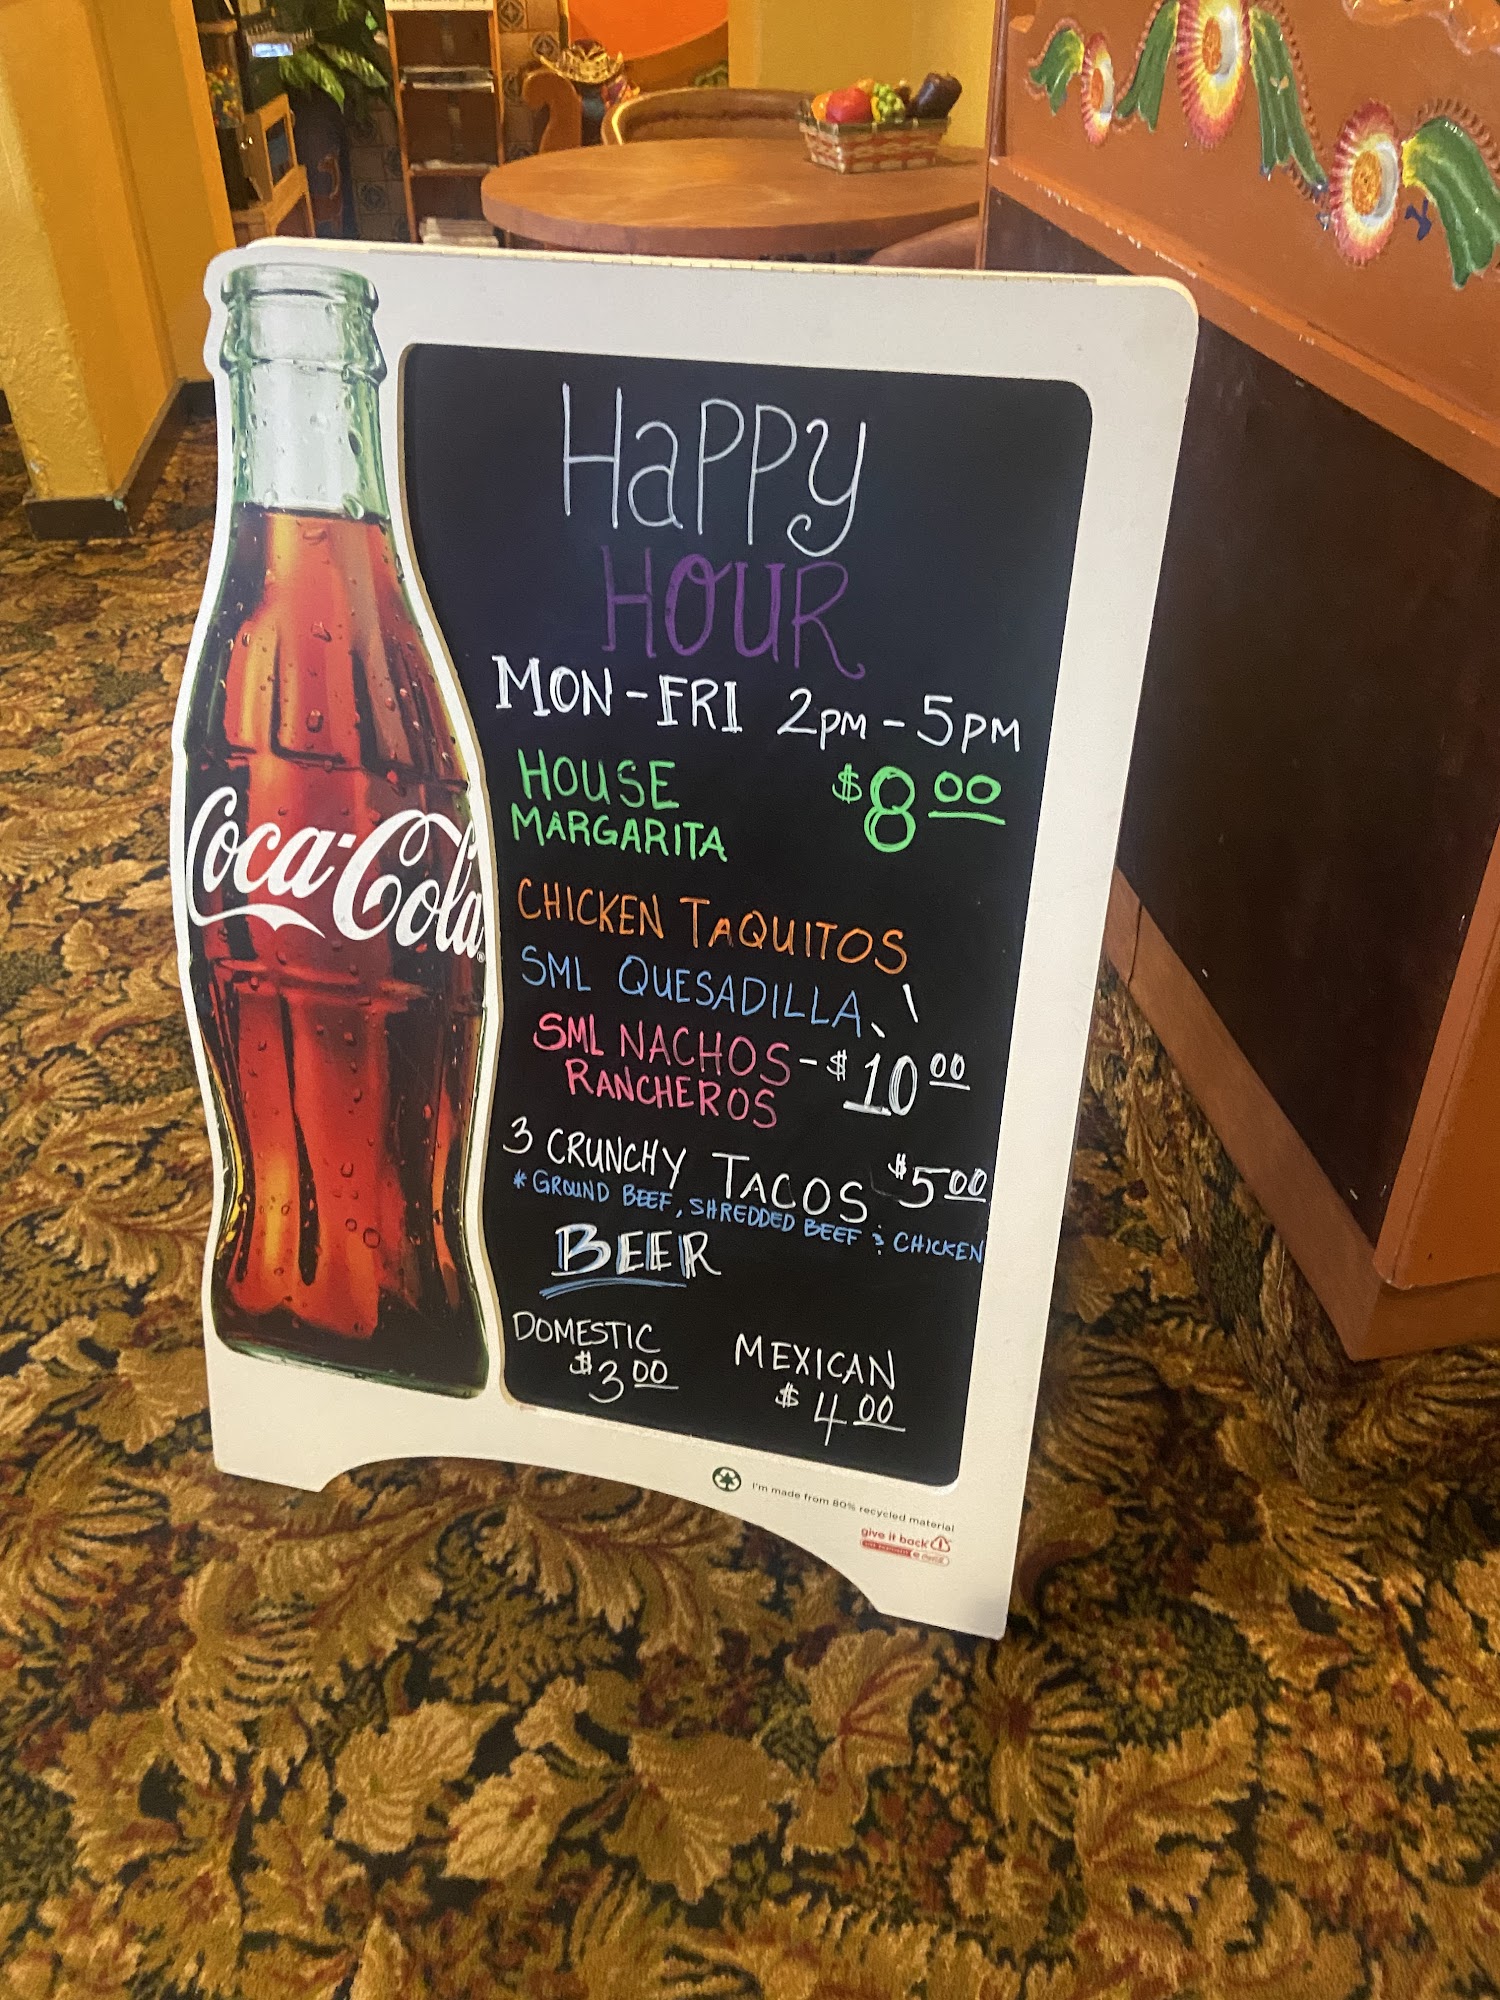 Coca-Cola
Happy
HOUR
MON-FRI 2PM-5PM
HOUSE $8.00
MARGARITA
CHICKEN TAQUITOS
SML QUESADILLA
SML NACHOS - $10.00
RANCHEROS
3 CRUNCHY TACOS $5.00
* GROUND BEEF, SHREDDED BEEF & CHICKEN
BEER
DOMESTIC
$3.00
MEXICAN
$4.00
I'm made from 80% recycled material
give it back